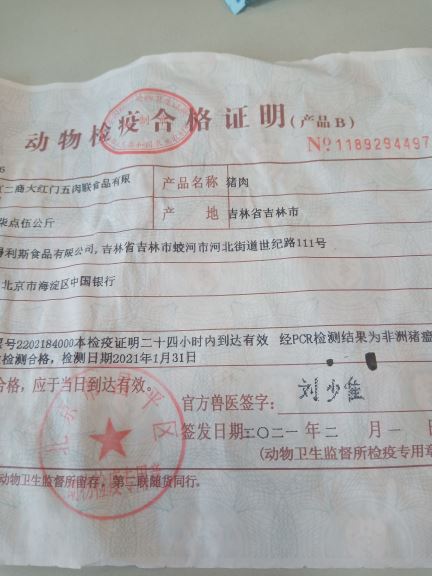 动物检疫合格证明(产品B)
№ 1189294497
二商大红门五肉联食品有限
产品名称 猪肉
点伍公斤
产 地 吉林省吉林市
得利斯食品有限公司,吉林省吉林市蛟河市河北街道世纪路111号
北京市海淀区中国银行
号2202184000本检疫证明二十四小时内到达有效 经PCR检测结果为非洲猪瘟
检测合格,检测日期2021年1月31日
合格,应于当日到达有效。
官方兽医签字:
刘少
签发日期:二〇二一年二月一日
(动物卫生监督所检疫专用章
北京市昌平区
动物检疫专用章
动物卫生监督所留存,第二联随货同行。